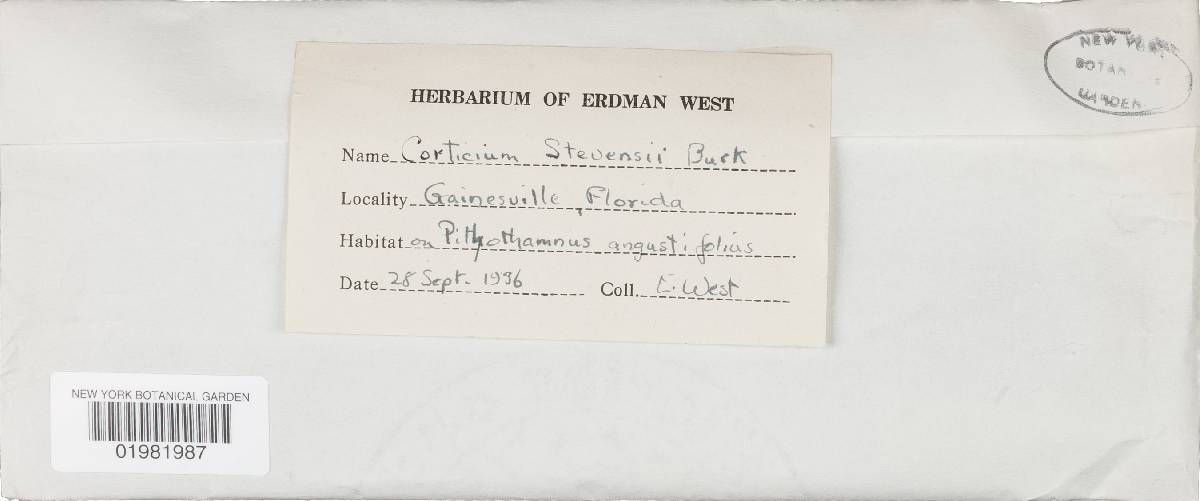 HERBARIUM OF ERDMAN WEST
Name Corticium Stevensii Burk
Locality Gainesville, Florida
Habitat on Pithothamnus angustifolius
Date 28 Sept. 1936 Coll. E. West
NEW YORK
BOTAN
GARDEN
NEW YORK BOTANICAL GARDEN
01981987